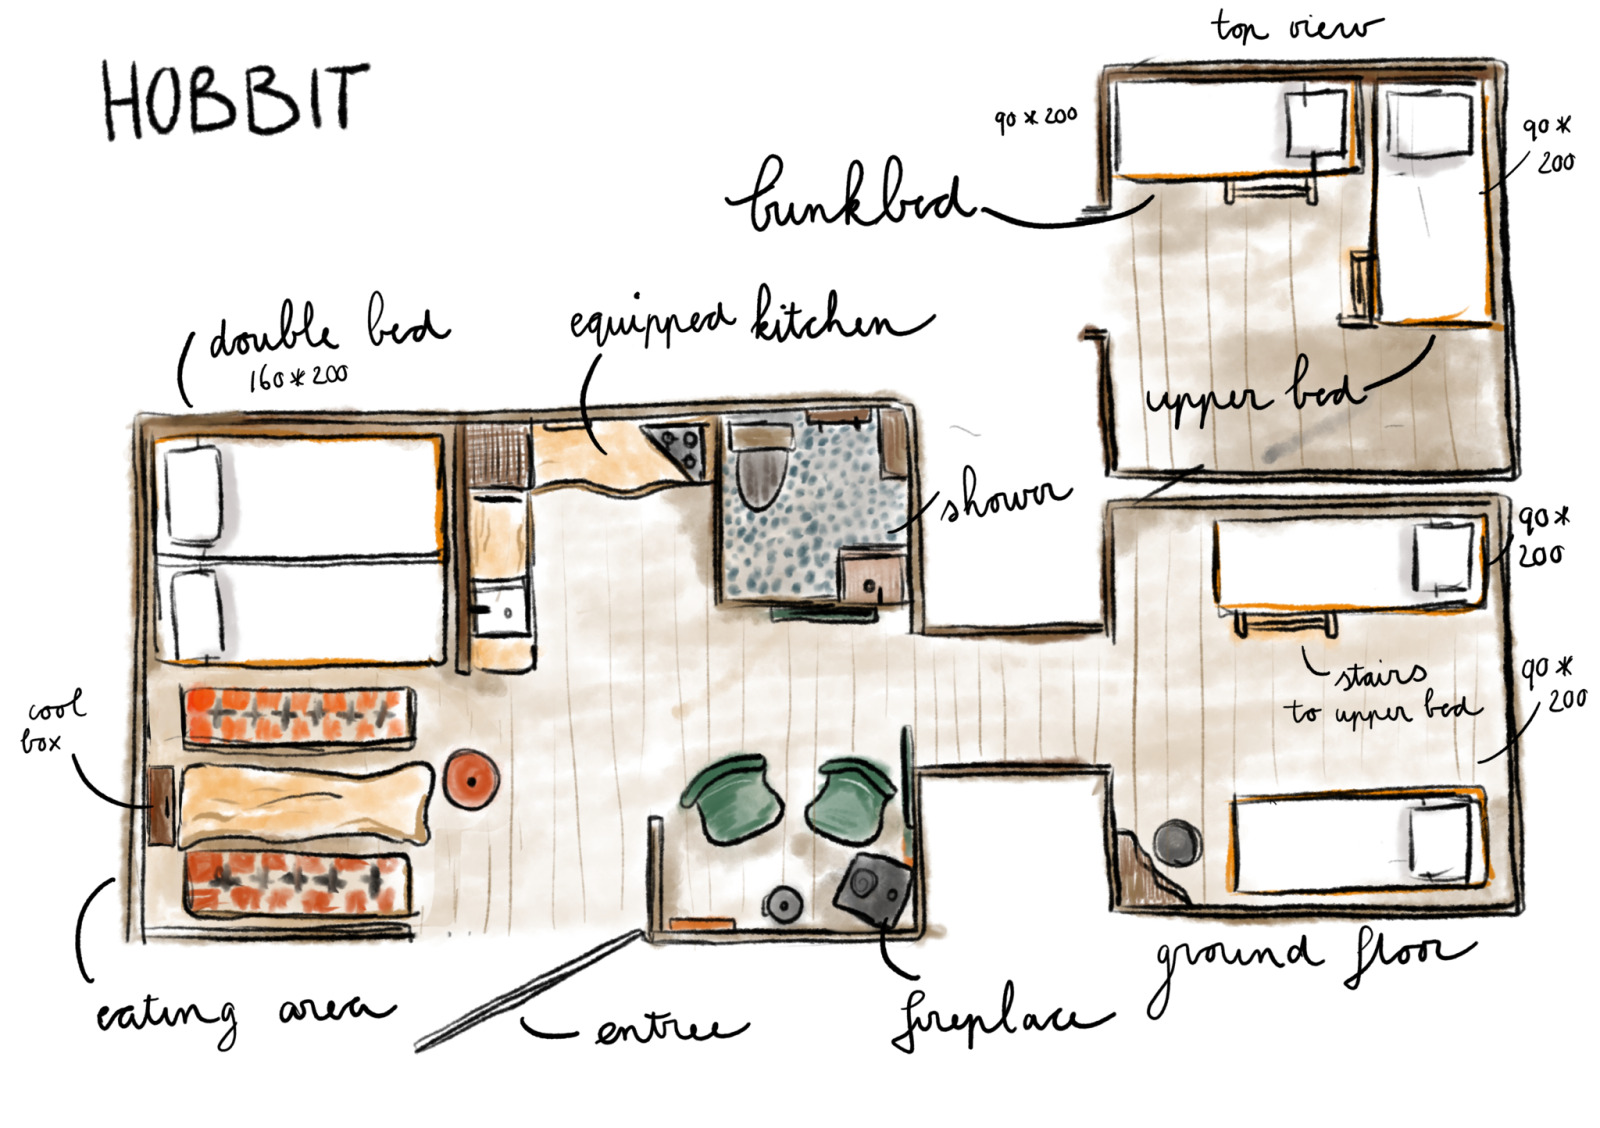 HOBBIT
top view
90 * 200
90 *
200
bunkbed
double bed
160 * 200
equipped kitchen
upper bed
shower
90 *
200
stairs
to upper bed
90 *
200
cool
box
ground floor
eating area
entree
fireplace